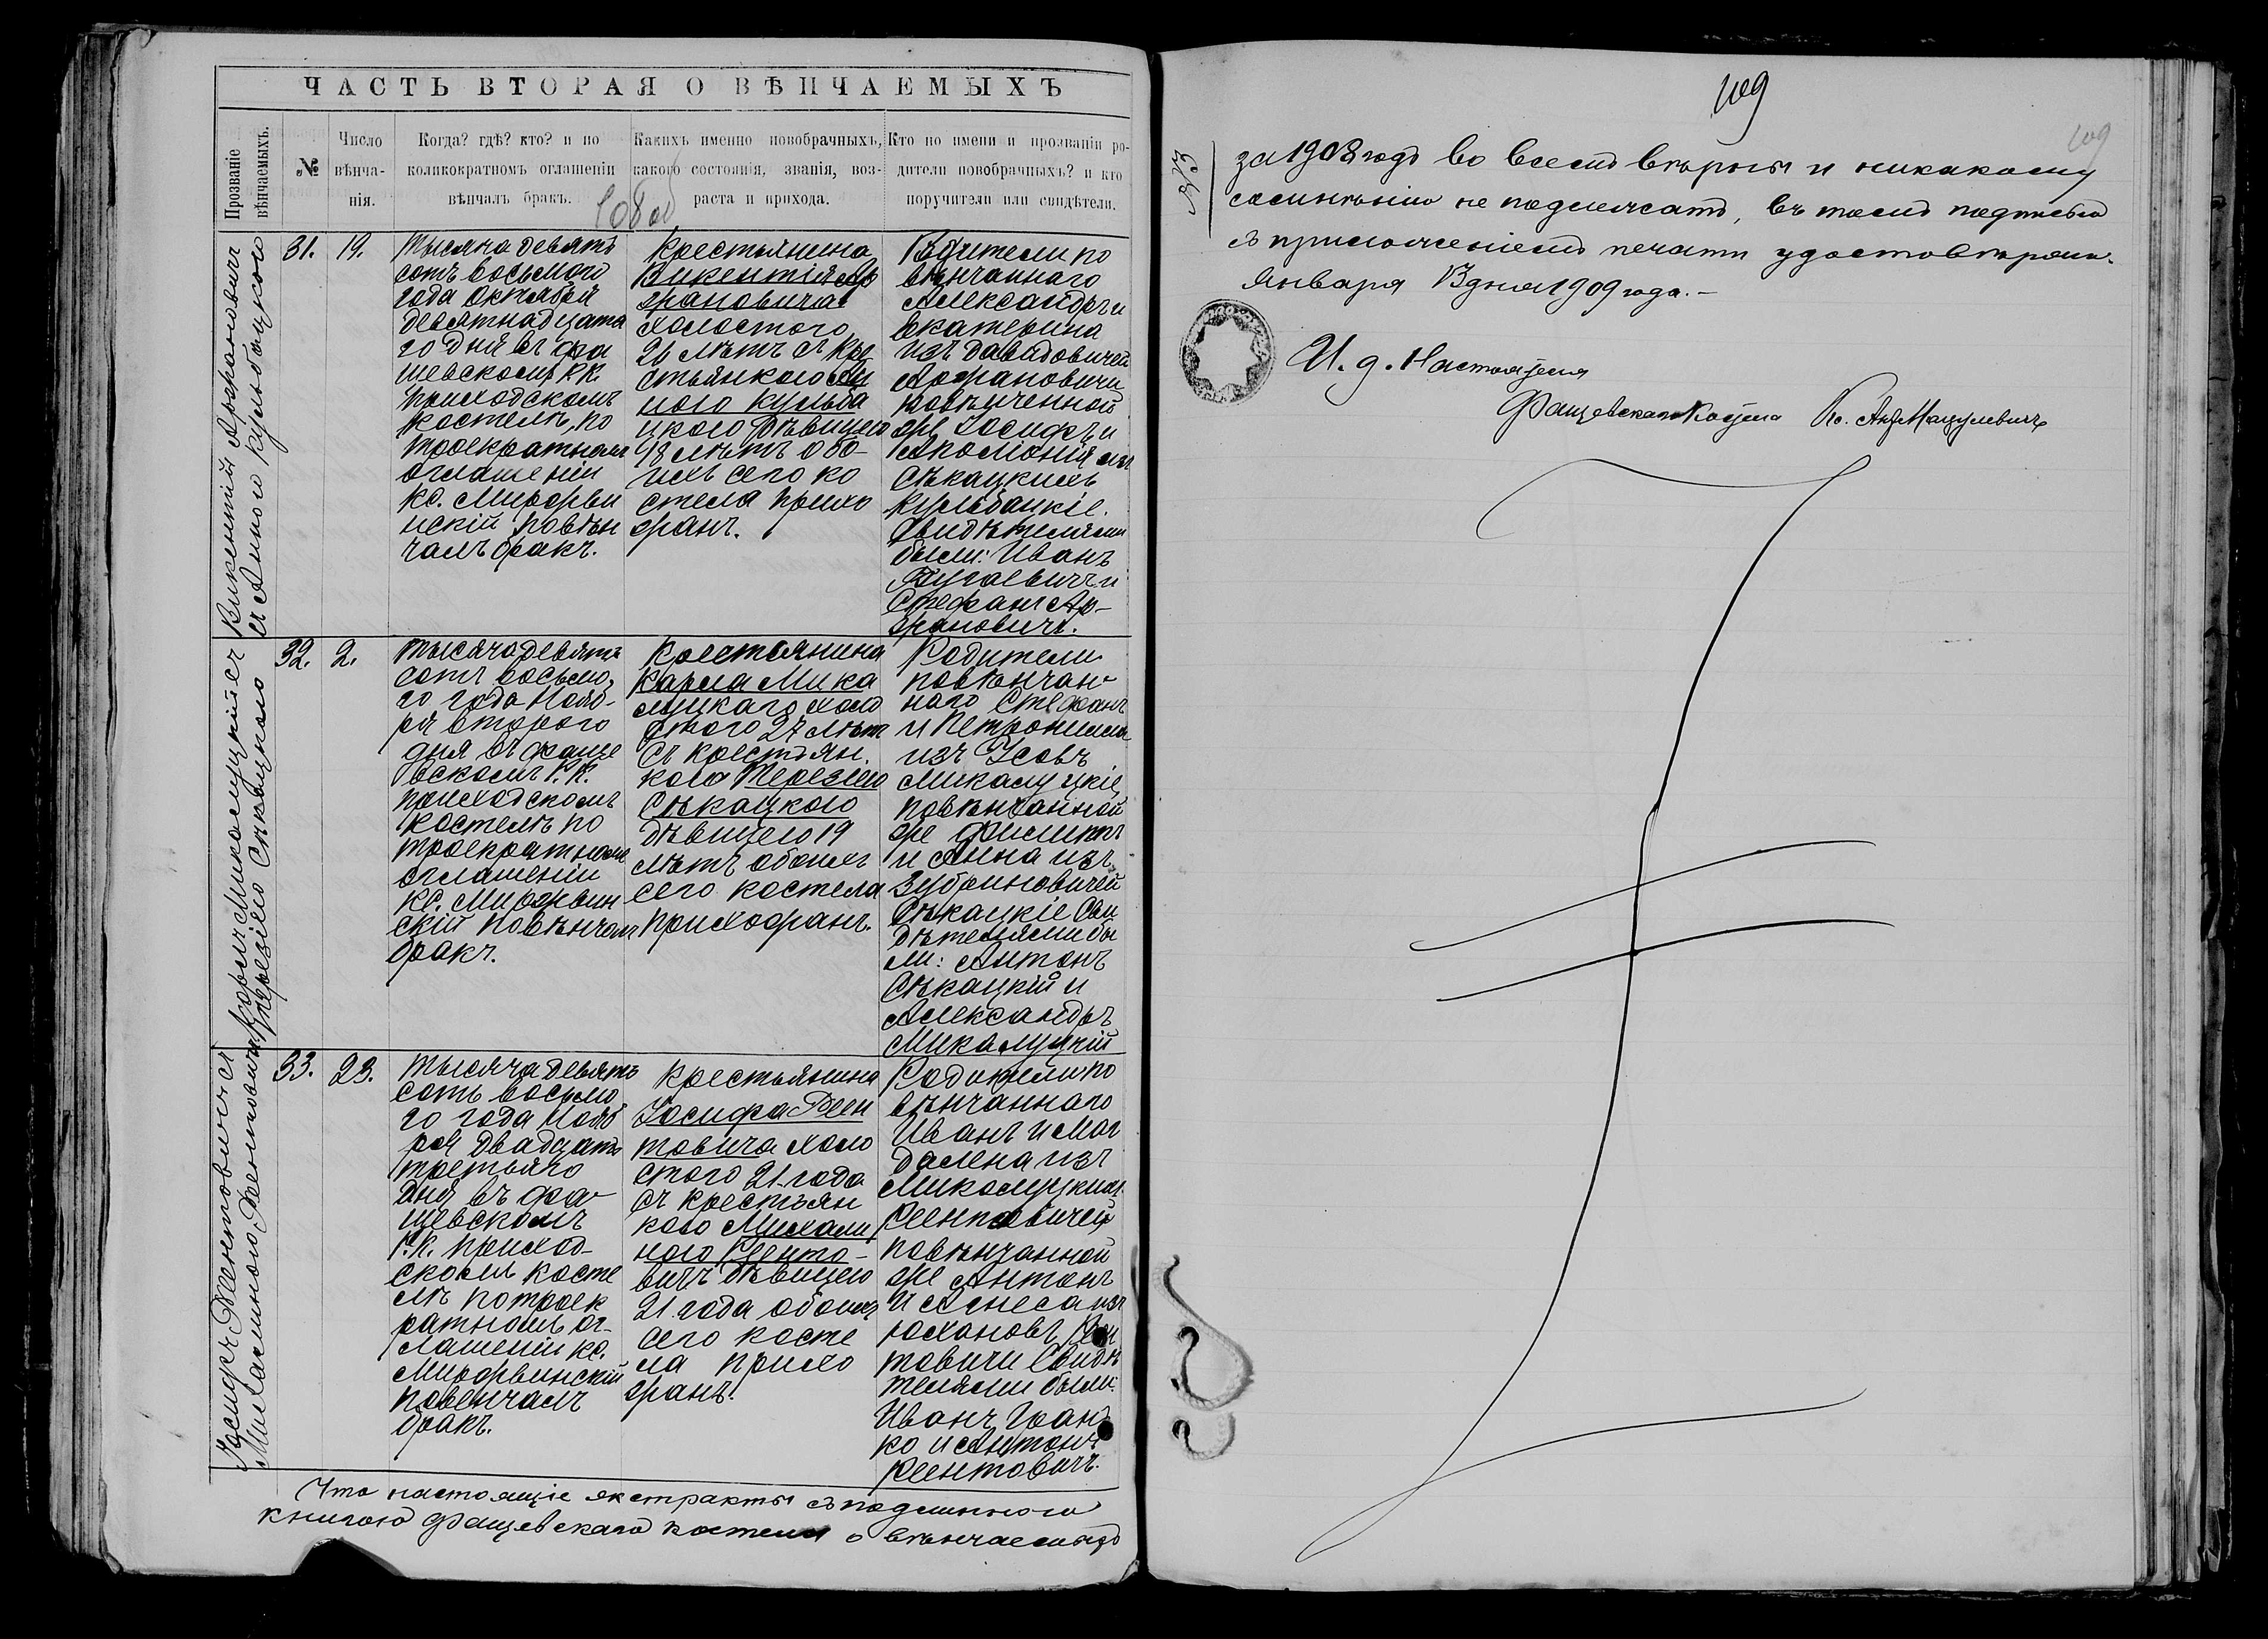 ЧАСТЬ ВТОРАЯ О ВѢНЧАЕМЫХЪ
Прозваніе вѣнчаемыхъ.
№
Число вѣнча-
нія.
Когда? гдѣ? кто? и по
коликократномъ оглашеніи
вѣнчалъ бракъ.
Какихъ именно новобрачныхъ,
какого состоянія, званія, воз-
раста и прихода.
Кто по имени и прозванію ро-
дители новобрачныхъ? и кто
поручители или свидѣтели.
108 об
Викентій
съ Анною Кульбацкою
31.
19.
Тысяча девять
сотъ восьмого
года Октября
девятнадцата
го дня въ Фа
щевскомъ Р.К.
приходскомъ
костелѣ, по
троекратномъ
оглашеніи
кс. Мирфвы
нскій повѣн
чалъ бракъ.
Крестьянина
Викентія
холостого,
21 лѣтъ съ Кре
стьянкою Ан
ною Кульба
цкою дѣвицею
18 лѣтъ обо-
ихъ сего ко
стела прихо
жанъ.
Родители по
вѣнчаннаго
Александръ и
Екатерина
изъ Давидовичей
повѣнченной
же Іосифъ и
изъ
Сѣкацкихъ
Кульбацкіе.
Свидѣтелями
были: Иванъ
и
Стефанъ
Карлъ Микалуцкій съ
Терезіею Сѣкацкою
32.
2.
Тысяча девять
сотъ восьмо
го года Нояб-
ря второго
дня въ Фаще
вскомъ Р.К.
приходскомъ
костелѣ по
троекратномъ
оглашеніи
кс. Мирфвин
скій повѣнчалъ
бракъ.
Крестьянина
Карла Мика
луцкаго холо
стого 27 лѣтъ
съ крестьян.
кою Терезіею
Сѣкацкою
дѣвицею 19
лѣтъ обоихъ
сего костела
прихожанъ.
Родители
повѣнчан-
наго Стефанъ
и Петронелла
изъ Усовъ
Микалуцкіе,
повѣнчанной
же Филиппъ
и Анна изъ
Зубриновичей
Сѣкацкіе Сви
дѣтелями бы
ли: Антонъ
Сѣкацкій и
Александръ
Микалуцкій
Іосифъ Жентовичъ съ
Михалиною Жентовичъ
33.
23.
Тысяча девять
сотъ восьмо
го года Нояб
ря двадцать
третьяго
дня въ Фа-
щевскомъ
Р.К. приход-
скомъ косте
лѣ по троек
ратномъ ог-
лашеніи кс.
Мирфвинскій
повенчалъ
бракъ.
Крестьянина
Іосифа Жен
товича холо
стого 21 года
съ крестьян
кою Михали
ною Женто-
вичъ дѣвицею
21 года обоихъ
сего косте
ла прихо
жанъ.
Родители по
вѣнчаннаго
Иванъ и Маг
далена изъ
Микалуцкихъ
Жентовичей
повѣнчанной
же Антонъ
и Агнеса изъ
Юхановъ Жен
товичи Свидѣ
телями были:
Иванъ
ко и Антонъ
Жентовичъ.
Что настоящіе экстракты съ подлинною
книгою Фащевскаго костела о вѣнчаемыхъ
109
109
за 1908 годъ во всемъ вѣрны и никакому
сомнѣнію не подлежатъ, въ томъ подписью
съ приложеніемъ печати удостовѣряю.
Января 13 дня 1909 года.—
И. д. Настоятеля
Фащевскаго Костела Кс.